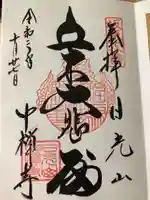 奉拝 日光山
立木大悲殿
中禅寺
令和三年
十月廿七日